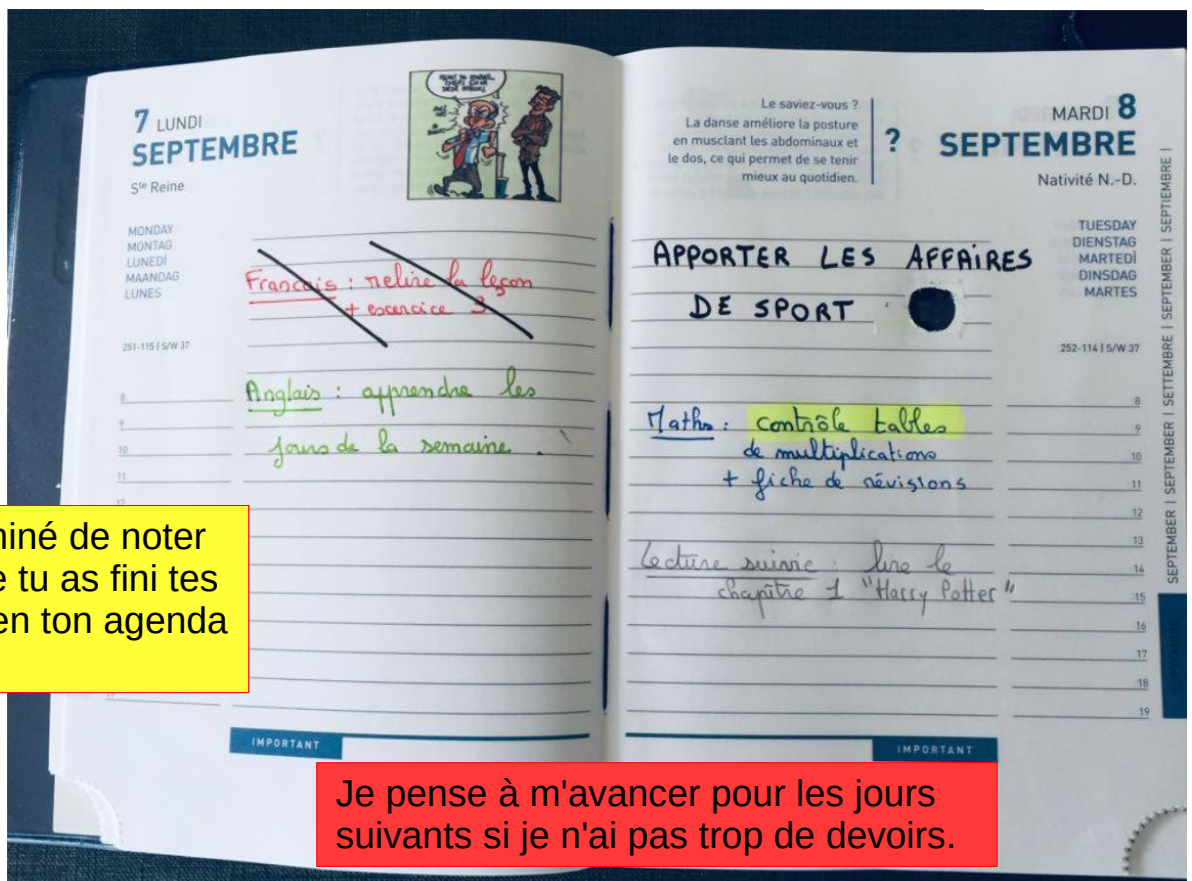 7 LUNDI
SEPTEMBRE
Ste Reine
MONDAY
MONTAG
LUNEDÌ
MAANDAG
LUNES
251-115 | S/W 37
Français : relire la leçon
+ exercice 3
Anglais : apprendre les
jours de la semaine.
8
9
10
11
12
IMPORTANT
Le saviez-vous ?
La danse améliore la posture
en musclant les abdominaux et
le dos, ce qui permet de se tenir
mieux au quotidien.
?
MARDI 8
SEPTEMBRE
Nativité N.-D.
TUESDAY
DIENSTAG
MARTEDÌ
DINSDAG
MARTES
252-114 | S/W 37
APPORTER LES AFFAIRES
DE SPORT
Maths : contrôle tables
de multiplications
+ fiche de révisions
Lecture suivie : lire le
chapître 1 "Harry Potter"
8
9
10
11
12
13
14
15
16
17
18
19
IMPORTANT
SEPTEMBER | SEPTEMBER | SETTEMBRE | SEPTEMBER | SEPTIEMBRE |
iné de noter
tu as fini tes
en ton agenda
Je pense à m'avancer pour les jours
suivants si je n'ai pas trop de devoirs.